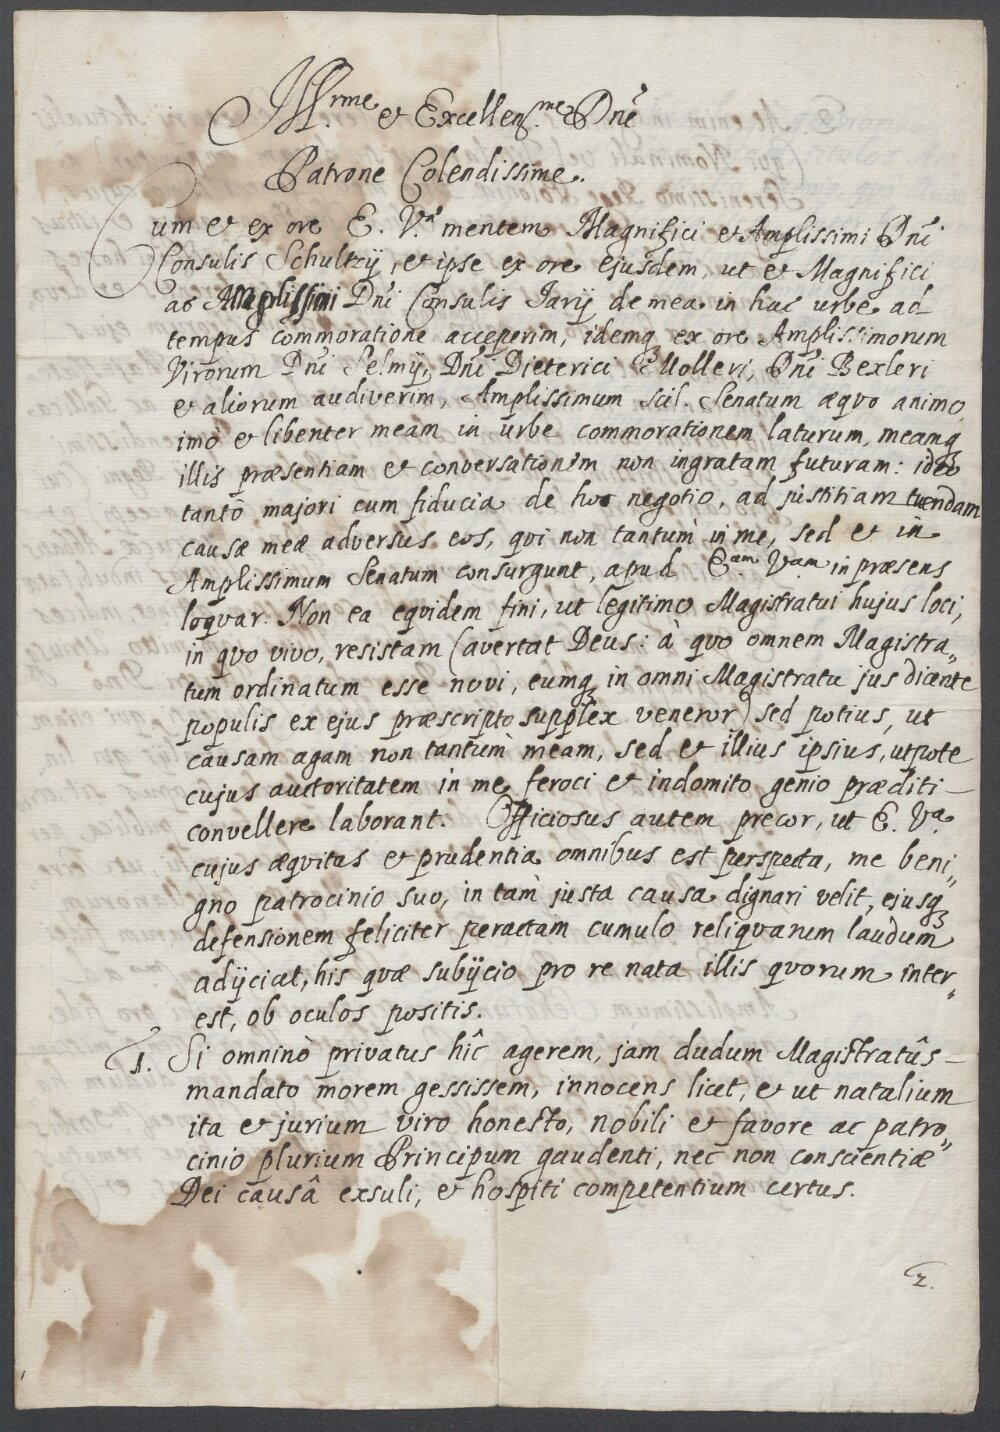 Ill.rme et Excellen.me Dne
Patrone Colendissime.
Cum et ex ore E. V.æ mentem Magnifici et Amplissimi Dni
Consulis Schultzij, et ipse ex ore ejusdem, ut et Magnifici
ac Amplissimi Dni Consulis Jarij de mea in hac urbe ad
tempus commoratione acceperim, idemq ex ore Amplissimorum
Virorum Dni Selmij, Dni Dieterici Molleri, Dni Bexleri
et aliorum audiverim, Amplissimum scil. Senatum æquo animo
imò et libenter meam in urbe commorationem laturum, meamq
illis præsentiam et conversationem non ingratam futuram: ideo
tantò majori cum fiducia de hoc negotio, ad justitiam tuendam
causæ meæ adversus eos, qvi non tantum in me, sed et in
Amplissimum Senatum consurgunt, apud E.am V.am in præsens
loqvar. Non ea eqvidem fini, ut legitimo Magistratui hujus loci,
in qvo vivo, resistam (avertat Deus: à qvo omnem Magistra„
tum ordinatum esse novi, eumq in omni Magistratu jus dicente
populis ex ejus præscripto supplex veneror) sed potius, ut
causam agam non tantum meam, sed et illius ipsius, utpote
cujus auctoritatem in me feroci et indomito genio præditi
convellere laborant. Officiosus autem precor, ut E. V.a
cujus æqvitas et prudentia omnibus est perspecta, me beni„
gno patrocinio suo, in tam justa causa dignari velit, ejusq
defensionem feliciter peractam cumulo reliqvarum laudum
adijciat, his qvæ subijcio pro re nata illis qvorum inter„
est, ob oculos positis.
1. Si omninò privatus hîc agerem, jam dudum Magistratûs
mandato morem gessissem, innocens licet, et ut natalium
ita et jurium viro honesto, nobili et favore ac patro„
cinio plurium Principum gaudenti, nec non conscientiæ
Dei causâ exsuli, et hospiti competentium certus.
2.